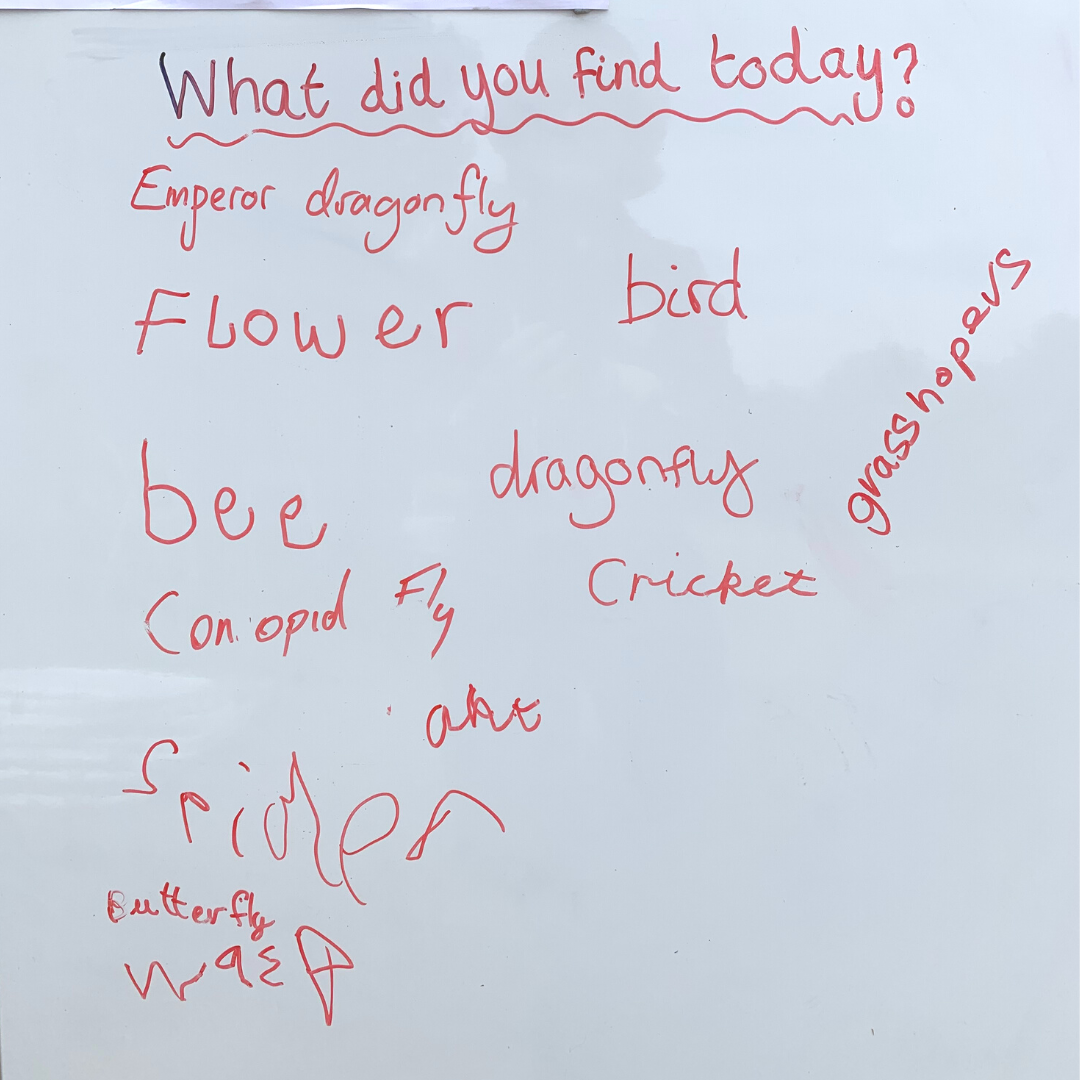 What did you find today?
Emperor dragonfly
Flower
bird
grasshopers
bee
dragonfly
Coniopid Fly
Cricket
ant
Spider
Butterfly
wasp